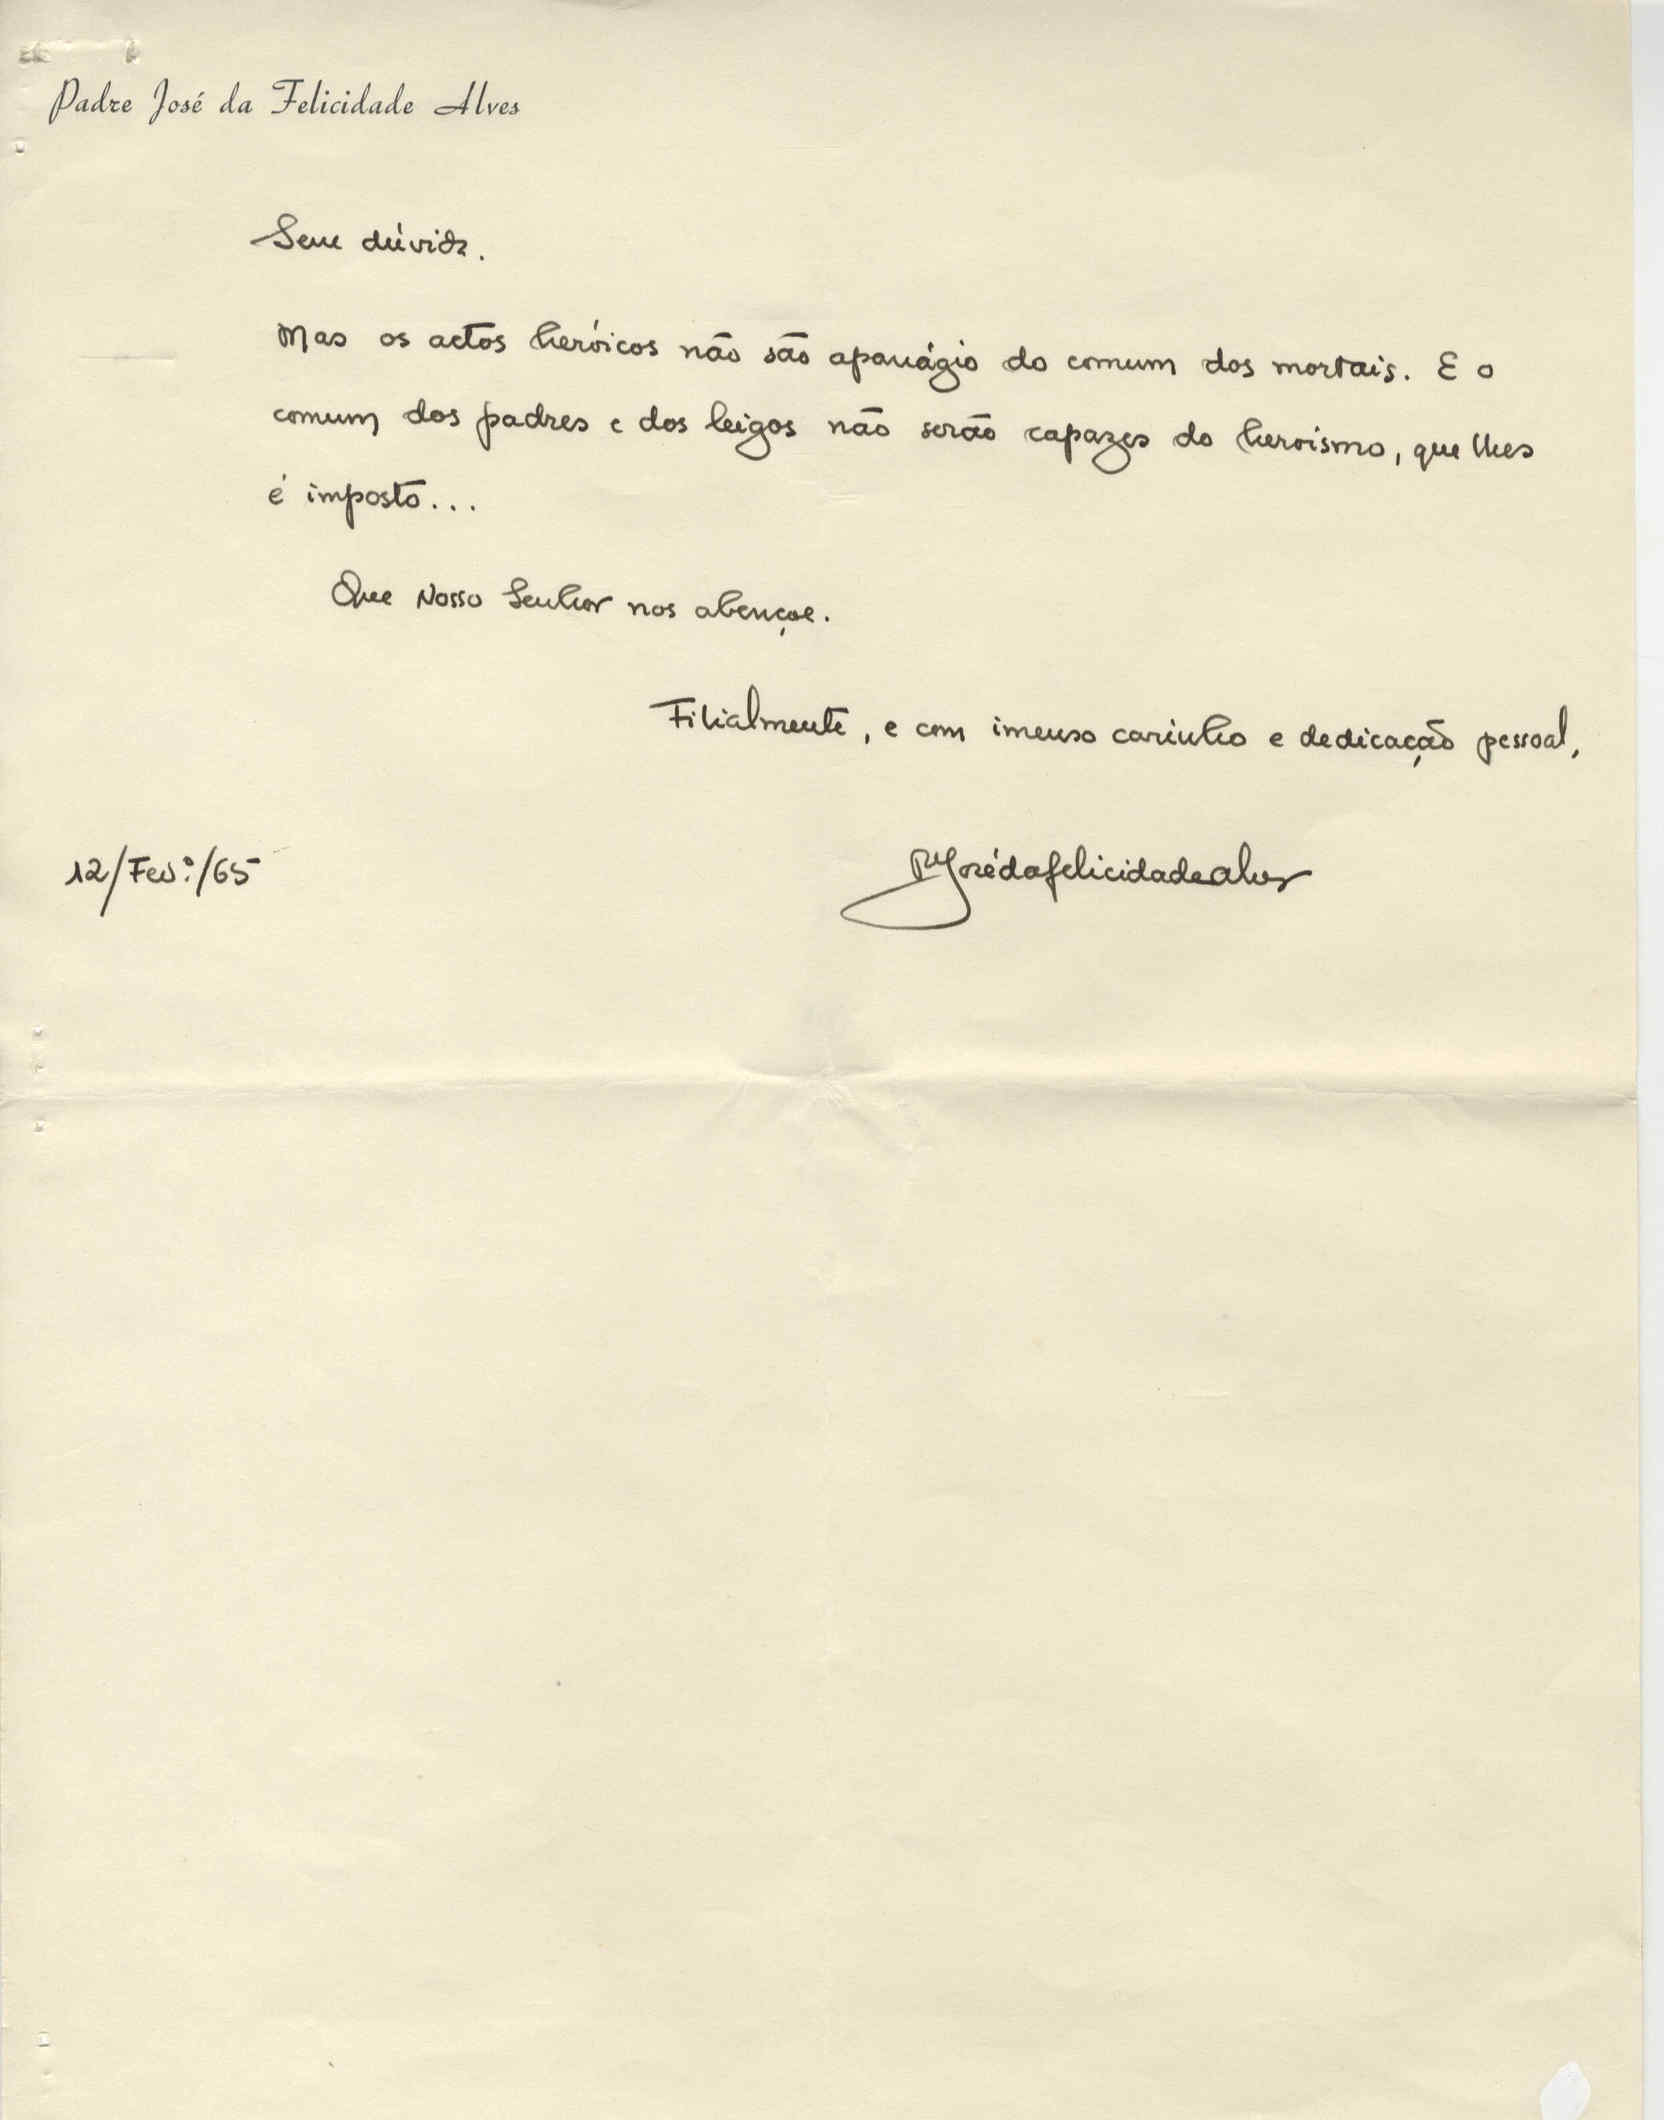 Padre José da Felicidade Alves
Sem dúvida.
Mas os actos heróicos não são apanágio do comum dos mortais. E o
comum dos padres e dos leigos não serão capazes do heroísmo, que lhes
é imposto...
Que Nosso Senhor nos abençoe.
Filialmente, e com imenso carinho e dedicação pessoal,
12/Fev:º/65
P.e José da felicidade alves